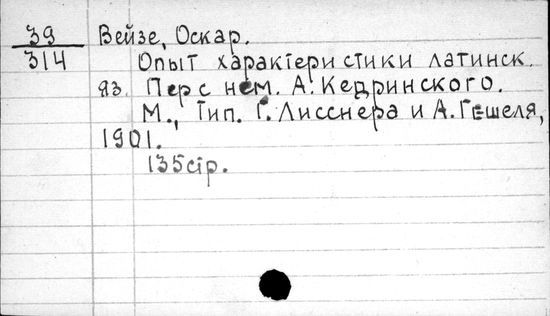 39
314
Вейзе, Оскар.
Опыт характеристики латинск.
яз. Пер с нем. А. Кедринского.
М., Тип. Г. Лисснера и А. Гешеля,
1901.
135 стр.